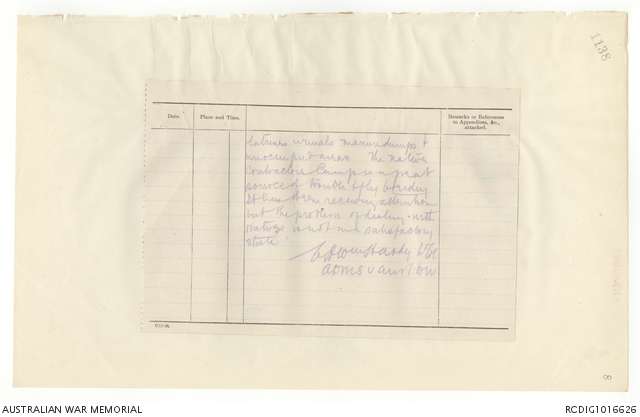 1138
Date.
Place and Time.
Remarks or References
to Appendices, &c.,
attached.
Latrines urinals manure dumps &
unoccupied areas. The native
contractors Camp is a great
source of trouble & fly breeding
It has been receiving attention
but the problem of dealing with
is not in a satisfactory
state
Lt Col
ADMS
8
AUSTRALIAN WAR MEMORIAL
RCDIG1016626